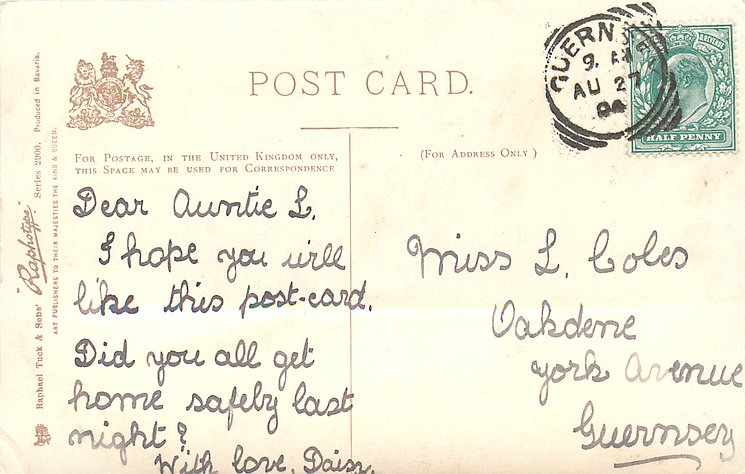 Raphael Tuck & Sons' "Raphotype" Series 2900. Produced in Bavaria.
ART PUBLISHERS TO THEIR MAJESTIES THE KING & QUEEN.
POST CARD.
FOR POSTAGE, IN THE UNITED KINGDOM ONLY,
THIS SPACE MAY BE USED FOR CORRESPONDENCE
(FOR ADDRESS ONLY)
GUERNSEY
9. AM
AU 27
04
HALF PENNY
Dear Auntie L.
I hope you will
like this post-card.
Did you all get
home safely last
night?
With love, Daisy.
Miss L. Coles
Oakdene
york Avenue
Guernsey